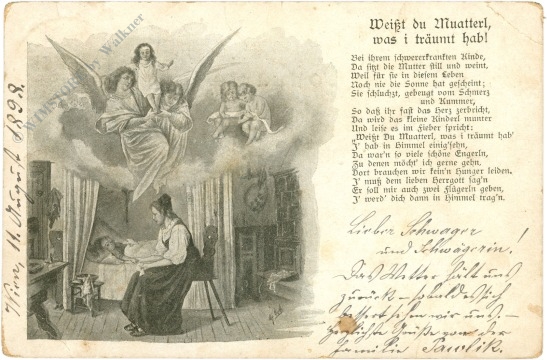 Weißt du Muatterl,
was i träumt hab!
Bei ihrem schwererkrankten Kinde,
Da sitzt die Mutter still und weint,
Weil für sie in diesem Leben
Noch nie die Sonne hat gescheint;
Sie schluchzt, gebeugt vom Schmerz
und Kummer,
So daß ihr fast das Herz zerbricht,
Da wird das kleine Kinderl munter
Und leise es im Fieber spricht:
"Weißt Du Muatterl, was i träumt hab'
I' hab in Himmel einig'sehn,
Da war'n so viele schöne Engerln,
Zu denen möcht' ich gerne gehn,
Dort brauchen wir kein'n Hunger leiden.
I' muß dem lieben Herrgott sag'n
Er soll mir auch zwei Flügerln geben,
I' werd' dich dann in Himmel trag'n.
Lieber Schwager
und Schwägerin!
Das Wetter hält uns
zurück – sobald es sich
bessert sehen wir uns. –
Herzlichste Grüße von der
Familie Pawlik.
Wien, 11. August 1898.
Walkner